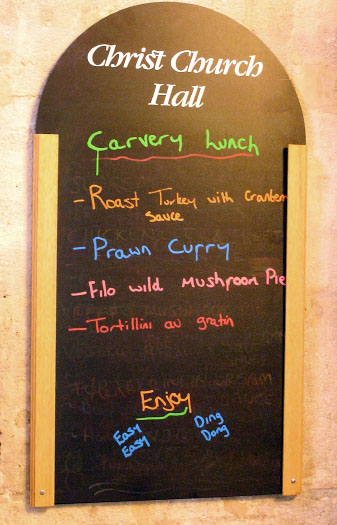 Christ Church
Hall
Carvery Lunch
- Roast Turkey with Cranberry
Sauce
- Prawn Curry
- Filo wild Mushroom Pie
- Tortillini au gratin
Enjoy
Easy
Easy
Ding
Dong